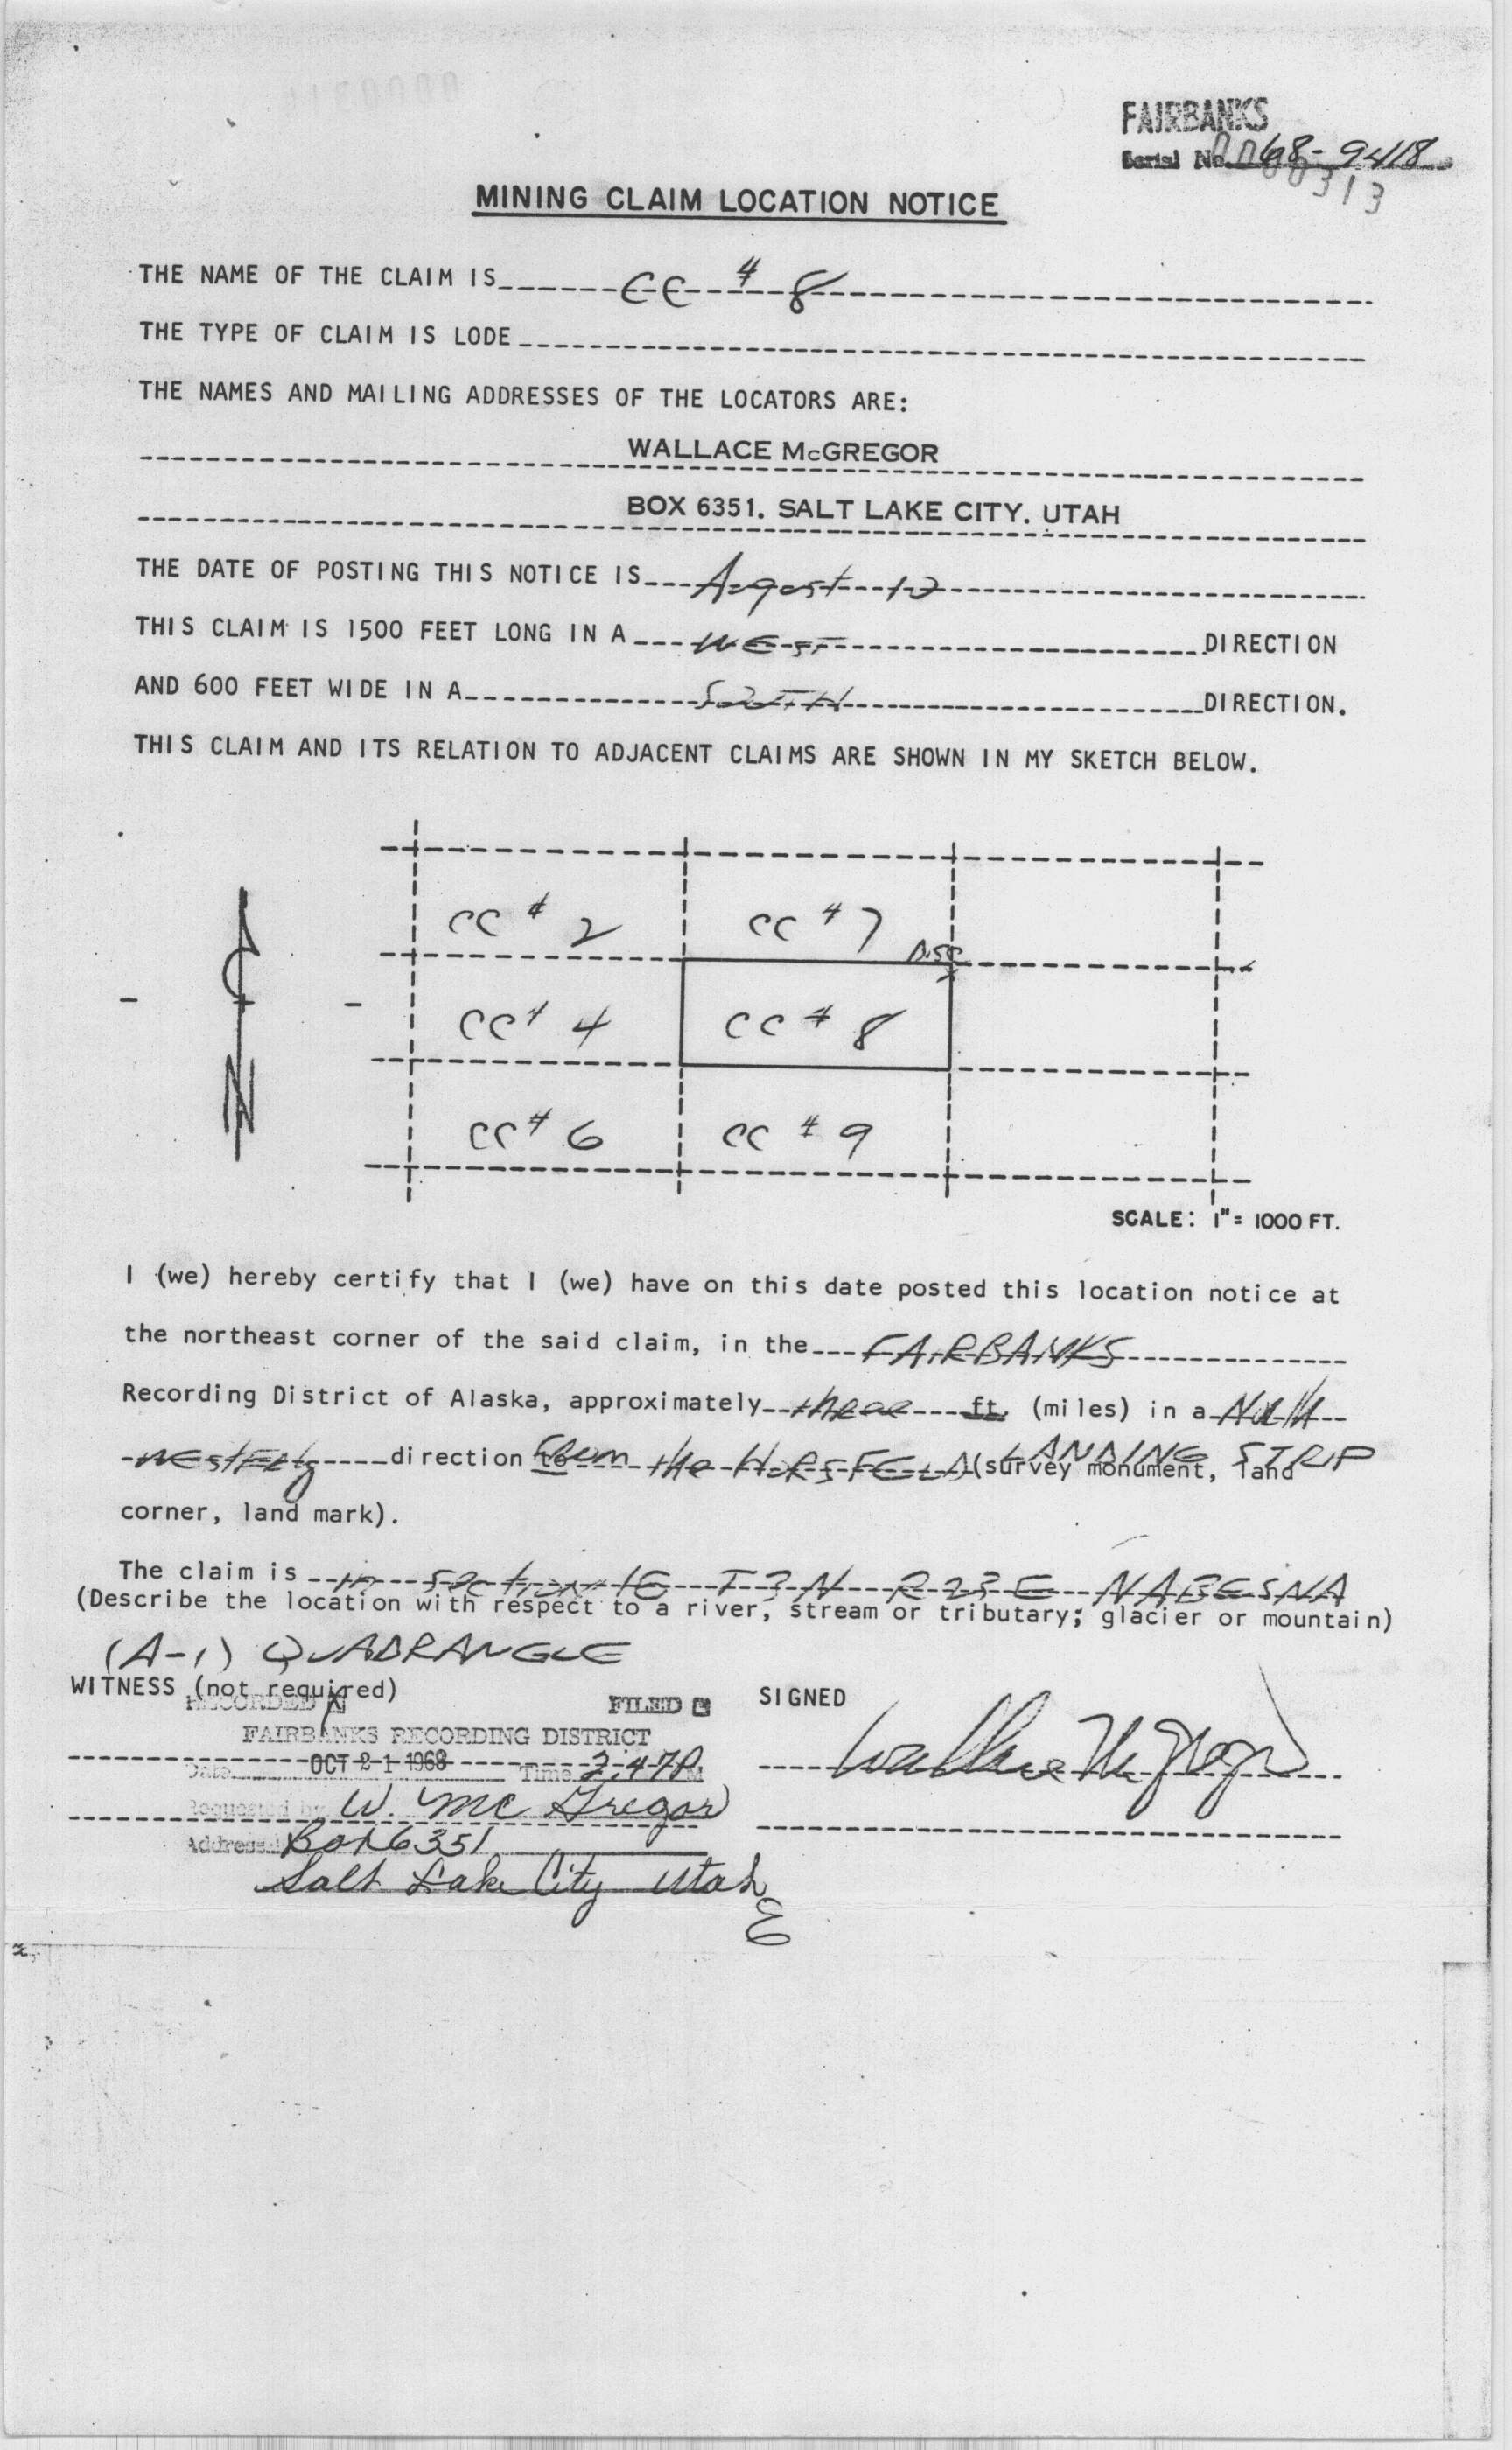 FAIRBANKS
Serial No. 68-9418
0000313
MINING CLAIM LOCATION NOTICE
THE NAME OF THE CLAIM IS CC # 8
THE TYPE OF CLAIM IS LODE
THE NAMES AND MAILING ADDRESSES OF THE LOCATORS ARE:
WALLACE McGREGOR
BOX 6351, SALT LAKE CITY, UTAH
THE DATE OF POSTING THIS NOTICE IS August 12
THIS CLAIM IS 1500 FEET LONG IN A WEST DIRECTION
AND 600 FEET WIDE IN A SOUTH DIRECTION.
THIS CLAIM AND ITS RELATION TO ADJACENT CLAIMS ARE SHOWN IN MY SKETCH BELOW.
CC # 2 CC # 7
DISC
CC # 4 CC # 8
N
CC # 6 CC # 9
SCALE: 1"= 1000 FT.
I (we) hereby certify that I (we) have on this date posted this location notice at
the northeast corner of the said claim, in the FAIRBANKS
Recording District of Alaska, approximately three ft. (miles) in a North
westerly direction to from the HORSFELD LANDING STRIP (survey monument, land
corner, land mark).
The claim is in section 16 T3N R23E NABESNA
(Describe the location with respect to a river, stream or tributary; glacier or mountain)
(A-1) QUADRANGLE
WITNESS (not required) SIGNED
RECORDED X FILED
FAIRBANKS RECORDING DISTRICT
Date OCT 21 1968 Time 2:47 P M Wallace McGregor
Requested by W. McGregor
Address Box 6351
Salt Lake City Utah